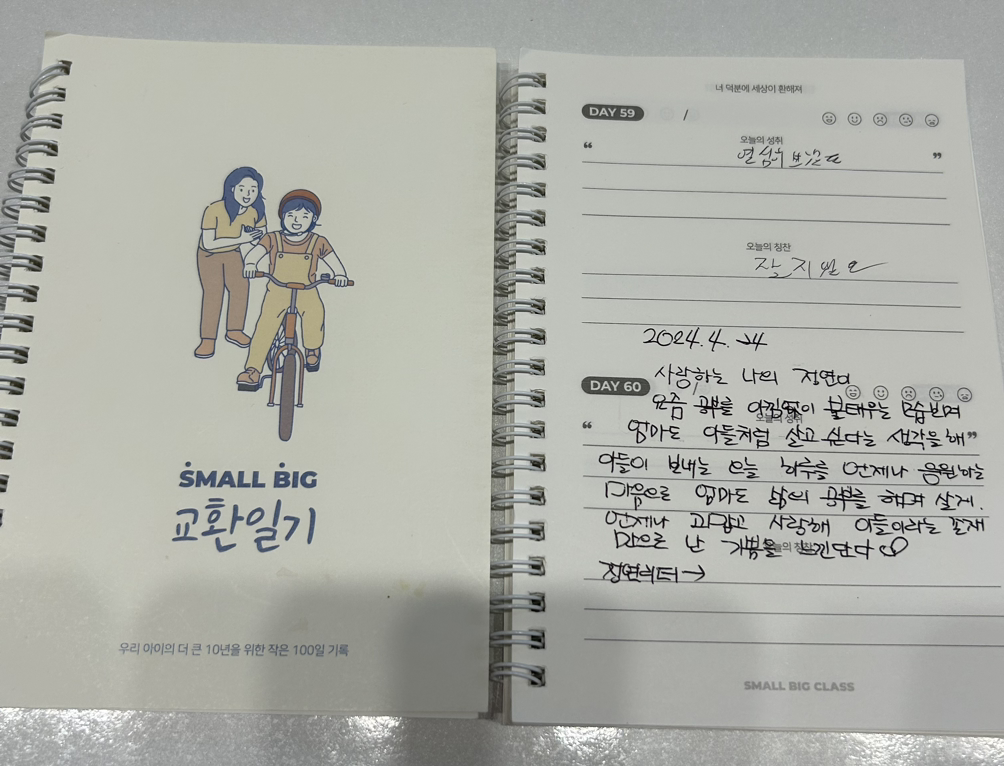 SMALL BIG
교환일기
우리 아이의 더 큰 10년을 위한 작은 100일 기록
너 덕분에 세상이 환해져
DAY 59 /
오늘의 성취
“ 열심히 보냈다 ”
오늘의 칭찬
잘 지냈오
2024.4.→4
사랑하는 나의 정연이
DAY 60 /
요즘 공부를 아낌없이 불태우는 모습보며
오늘의 성취
“ 엄마도 아들처럼 살고 싶다는 생각을 해 ”
아들이 보내는 오늘 하루를 언제나 응원하는
마음으로 엄마도 삶의 공부를 하며 살게.
언제나 고맙고 사랑해 아들이라는 존재
만으로 난 기쁨을 느낀단다
오늘의 칭찬
정연쉬터→
SMALL BIG CLASS